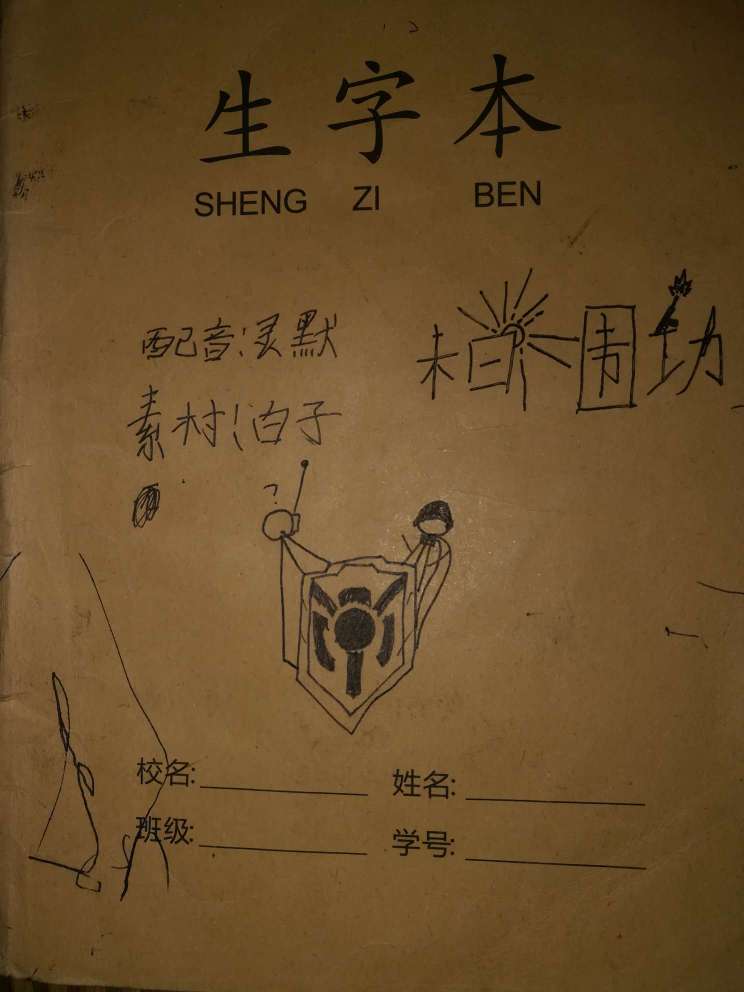 生字本
SHENG ZI BEN
配音:灵默
素材!白子
?
校名:
姓名:
班级:
学号: